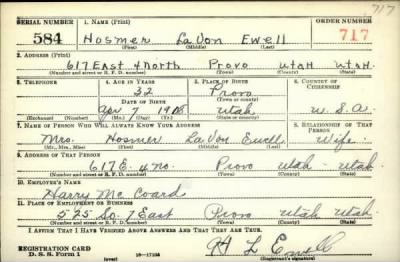 717
SERIAL NUMBER 1. NAME (Print) ORDER NUMBER
584 Hosmer La Von Ewell 717
(First) (Middle) (Last)
2. ADDRESS (Print)
617 East 4 North Provo Utah Utah.
(Number and street or R. F. D. number) (Town) (County) (State)
3. TELEPHONE 4. AGE IN YEARS 5. PLACE OF BIRTH 6. COUNTRY OF CITIZENSHIP
32 Provo
DATE OF BIRTH (Town or county)
Apr 7 Utah U.S.A.
(Exchange) (Number) (Mo.) (Day) (Yr.) (State or country)
7. NAME OF PERSON WHO WILL ALWAYS KNOW YOUR ADDRESS 8. RELATIONSHIP OF THAT PERSON
Mrs. Hosmer La Von Ewell Wife
(Mr., Mrs., Miss) (First) (Middle) (Last)
9. ADDRESS OF THAT PERSON
617 E. 4 no. Provo Utah - Utah.
(Number and street or R. F. D. number) (Town) (County) (State)
10. EMPLOYER'S NAME
Harry Mc Coard
11. PLACE OF EMPLOYMENT OR BUSINESS
525 So. 7 East Provo Utah Utah
(Number and street or R. F. D. number) (Town) (County) (State)
I AFFIRM THAT I HAVE VERIFIED ABOVE ANSWERS AND THAT THEY ARE TRUE.
H L Ewell
REGISTRATION CARD
D. S. S. Form 1 (over) 16—17105 (Registrant's signature)